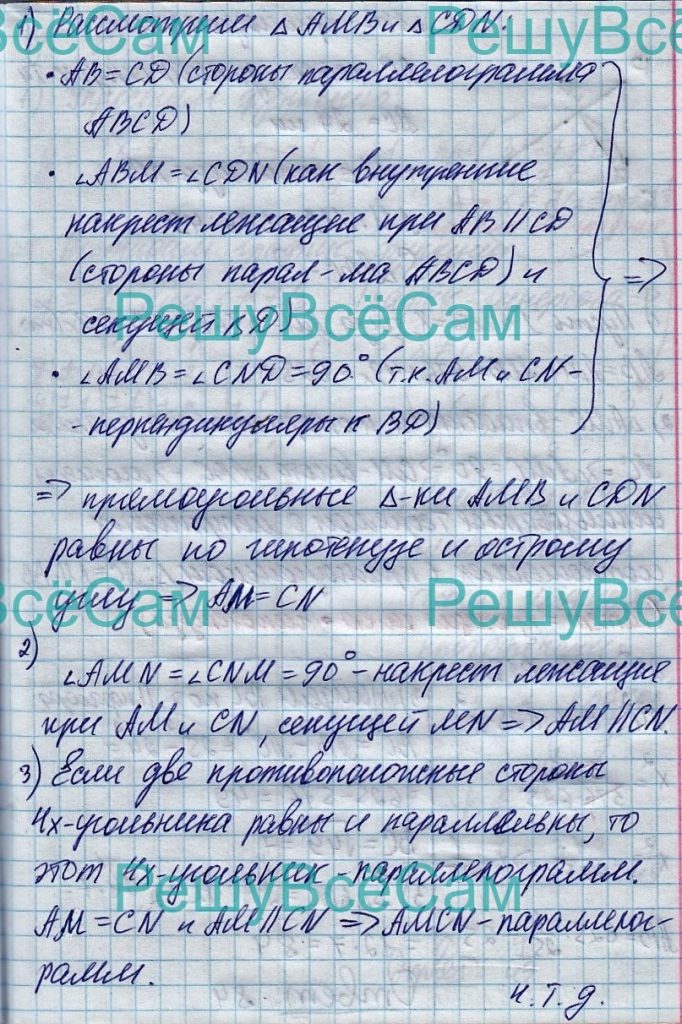 1) Рассмотрим △ AMB и △ CDN:
• AB = CD (стороны параллелограмма
ABCD)
• ∠ABM = ∠CDN (как внутренние
накрест лежащие при AB || CD
(стороны парал-ма ABCD) и
секущей BD)
• ∠AMB = ∠CND = 90° (т.к. AM и CN -
- перпендикуляры к BD)
=>
=> прямоугольные △-ки AMB и CDN
равны по гипотенузе и острому
углу => AM = CN
2)
∠AMN = ∠CNM = 90° - накрест лежащие
при AM и CN, секущей MN => AM || CN.
3) Если две противоположные стороны
4х-угольника равны и параллельны, то
этот 4х-угольник - параллелограмм.
AM = CN и AM || CN => AMCN - параллелог-
рамм.
ч.т.д.
РешуВсёСам
РешуВсё
РешуВсёСам
ВсёСам
РешуВсё
РешуВсёСам